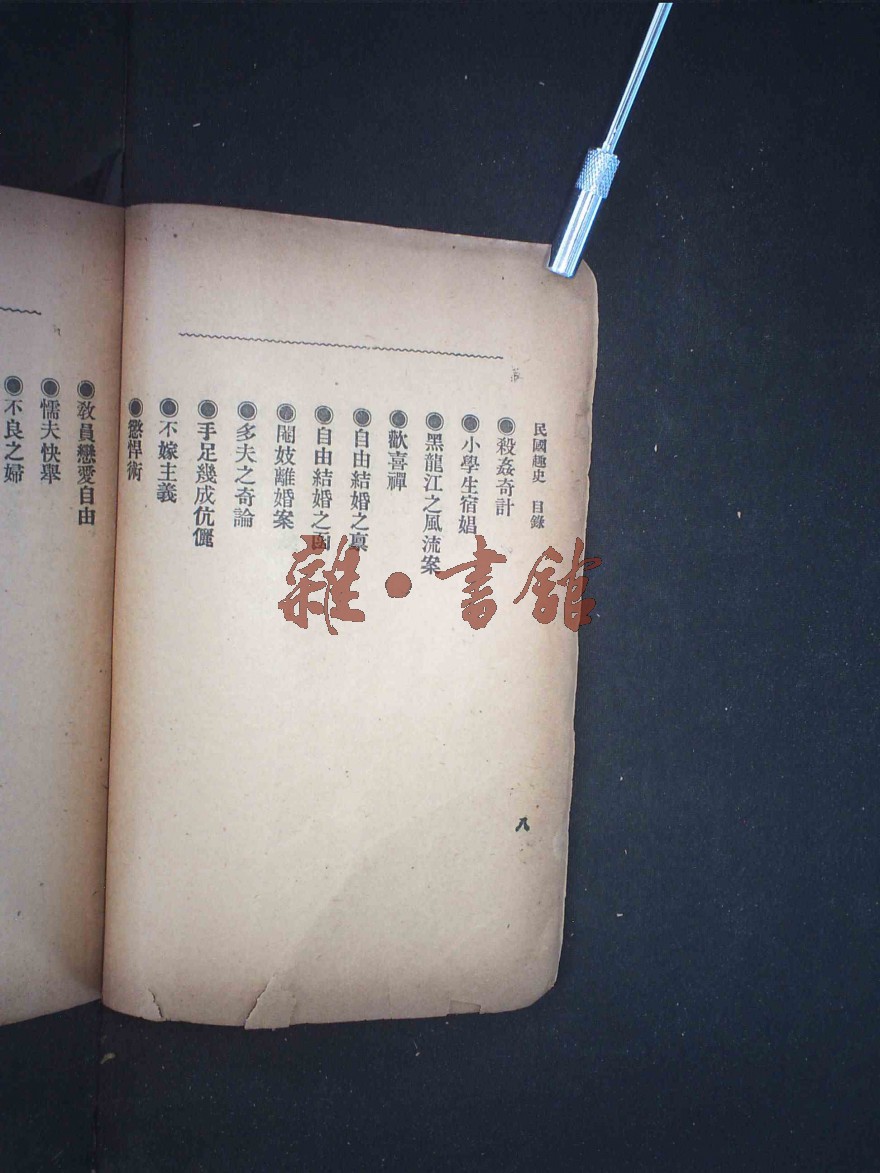 民國趣史　目錄
◉殺姦奇計
◉小學生宿娼
◉黑龍江之風流案
◉歡喜禪
◉自由結婚之稟
◉自由結婚之函
◉閹妓離婚案
◉多夫之奇論
◉手足幾成伉儷
◉不嫁主義
◉懲悍術
八
◉教員戀愛自由
◉懦夫快舉
◉不良之婦
雜·書館